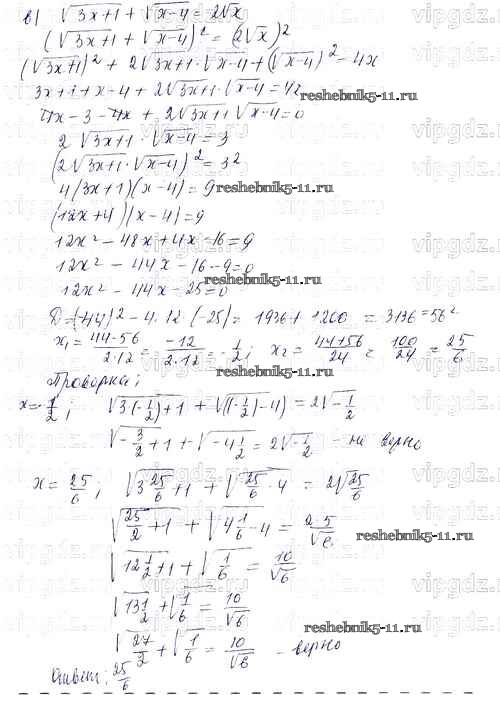 в) √(3x+1) + √(x-4) = 2√x
(√(3x+1) + √(x-4))² = (2√x)²
(√(3x+1))² + 2√(3x+1)·√(x-4) + (√(x-4))² = 4x
3x+1+x-4 + 2√(3x+1)·√(x-4) = 4x
reshebnik5-11.ru
4x-3-4x + 2√(3x+1)·√(x-4) = 0
2√(3x+1)·√(x-4) = 3
(2√(3x+1)·√(x-4))² = 3²
4(3x+1)(x-4) = 9
reshebnik5-11.ru
(12x+4)(x-4) = 9
12x² - 48x + 4x - 16 = 9
12x² - 44x - 16 - 9 = 0
reshebnik5-11.ru
12x² - 44x - 25 = 0
D = (-44)² - 4·12·(-25) = 1936 + 1200 = 3136 = 56²
x₁ = (44-56)/(2·12) = -12/(2·12) = -1/2; x₂ = (44+56)/24 = 100/24 = 25/6
reshebnik5-11.ru
Проверка;
x = -1/2; √(3(-1/2)+1) + √((-1/2)-4) = 2√(-1/2)
√(-3/2+1) + √(-4 1/2) = 2√(-1/2) - не верно
x = 25/6; √(3 25/6+1) + √(25/6-4) = 2√(25/6)
√(25/2+1) + √(4 1/6-4) = 2·5/√6
reshebnik5-11.ru
√(12 1/2+1) + √(1/6) = 10/√6
√(13 1/2) + √(1/6) = 10/√6
reshebnik5-11.ru
√(27/2) + √(1/6) = 10/√6 - верно
Ответ: 25/6
vipgdz.ru